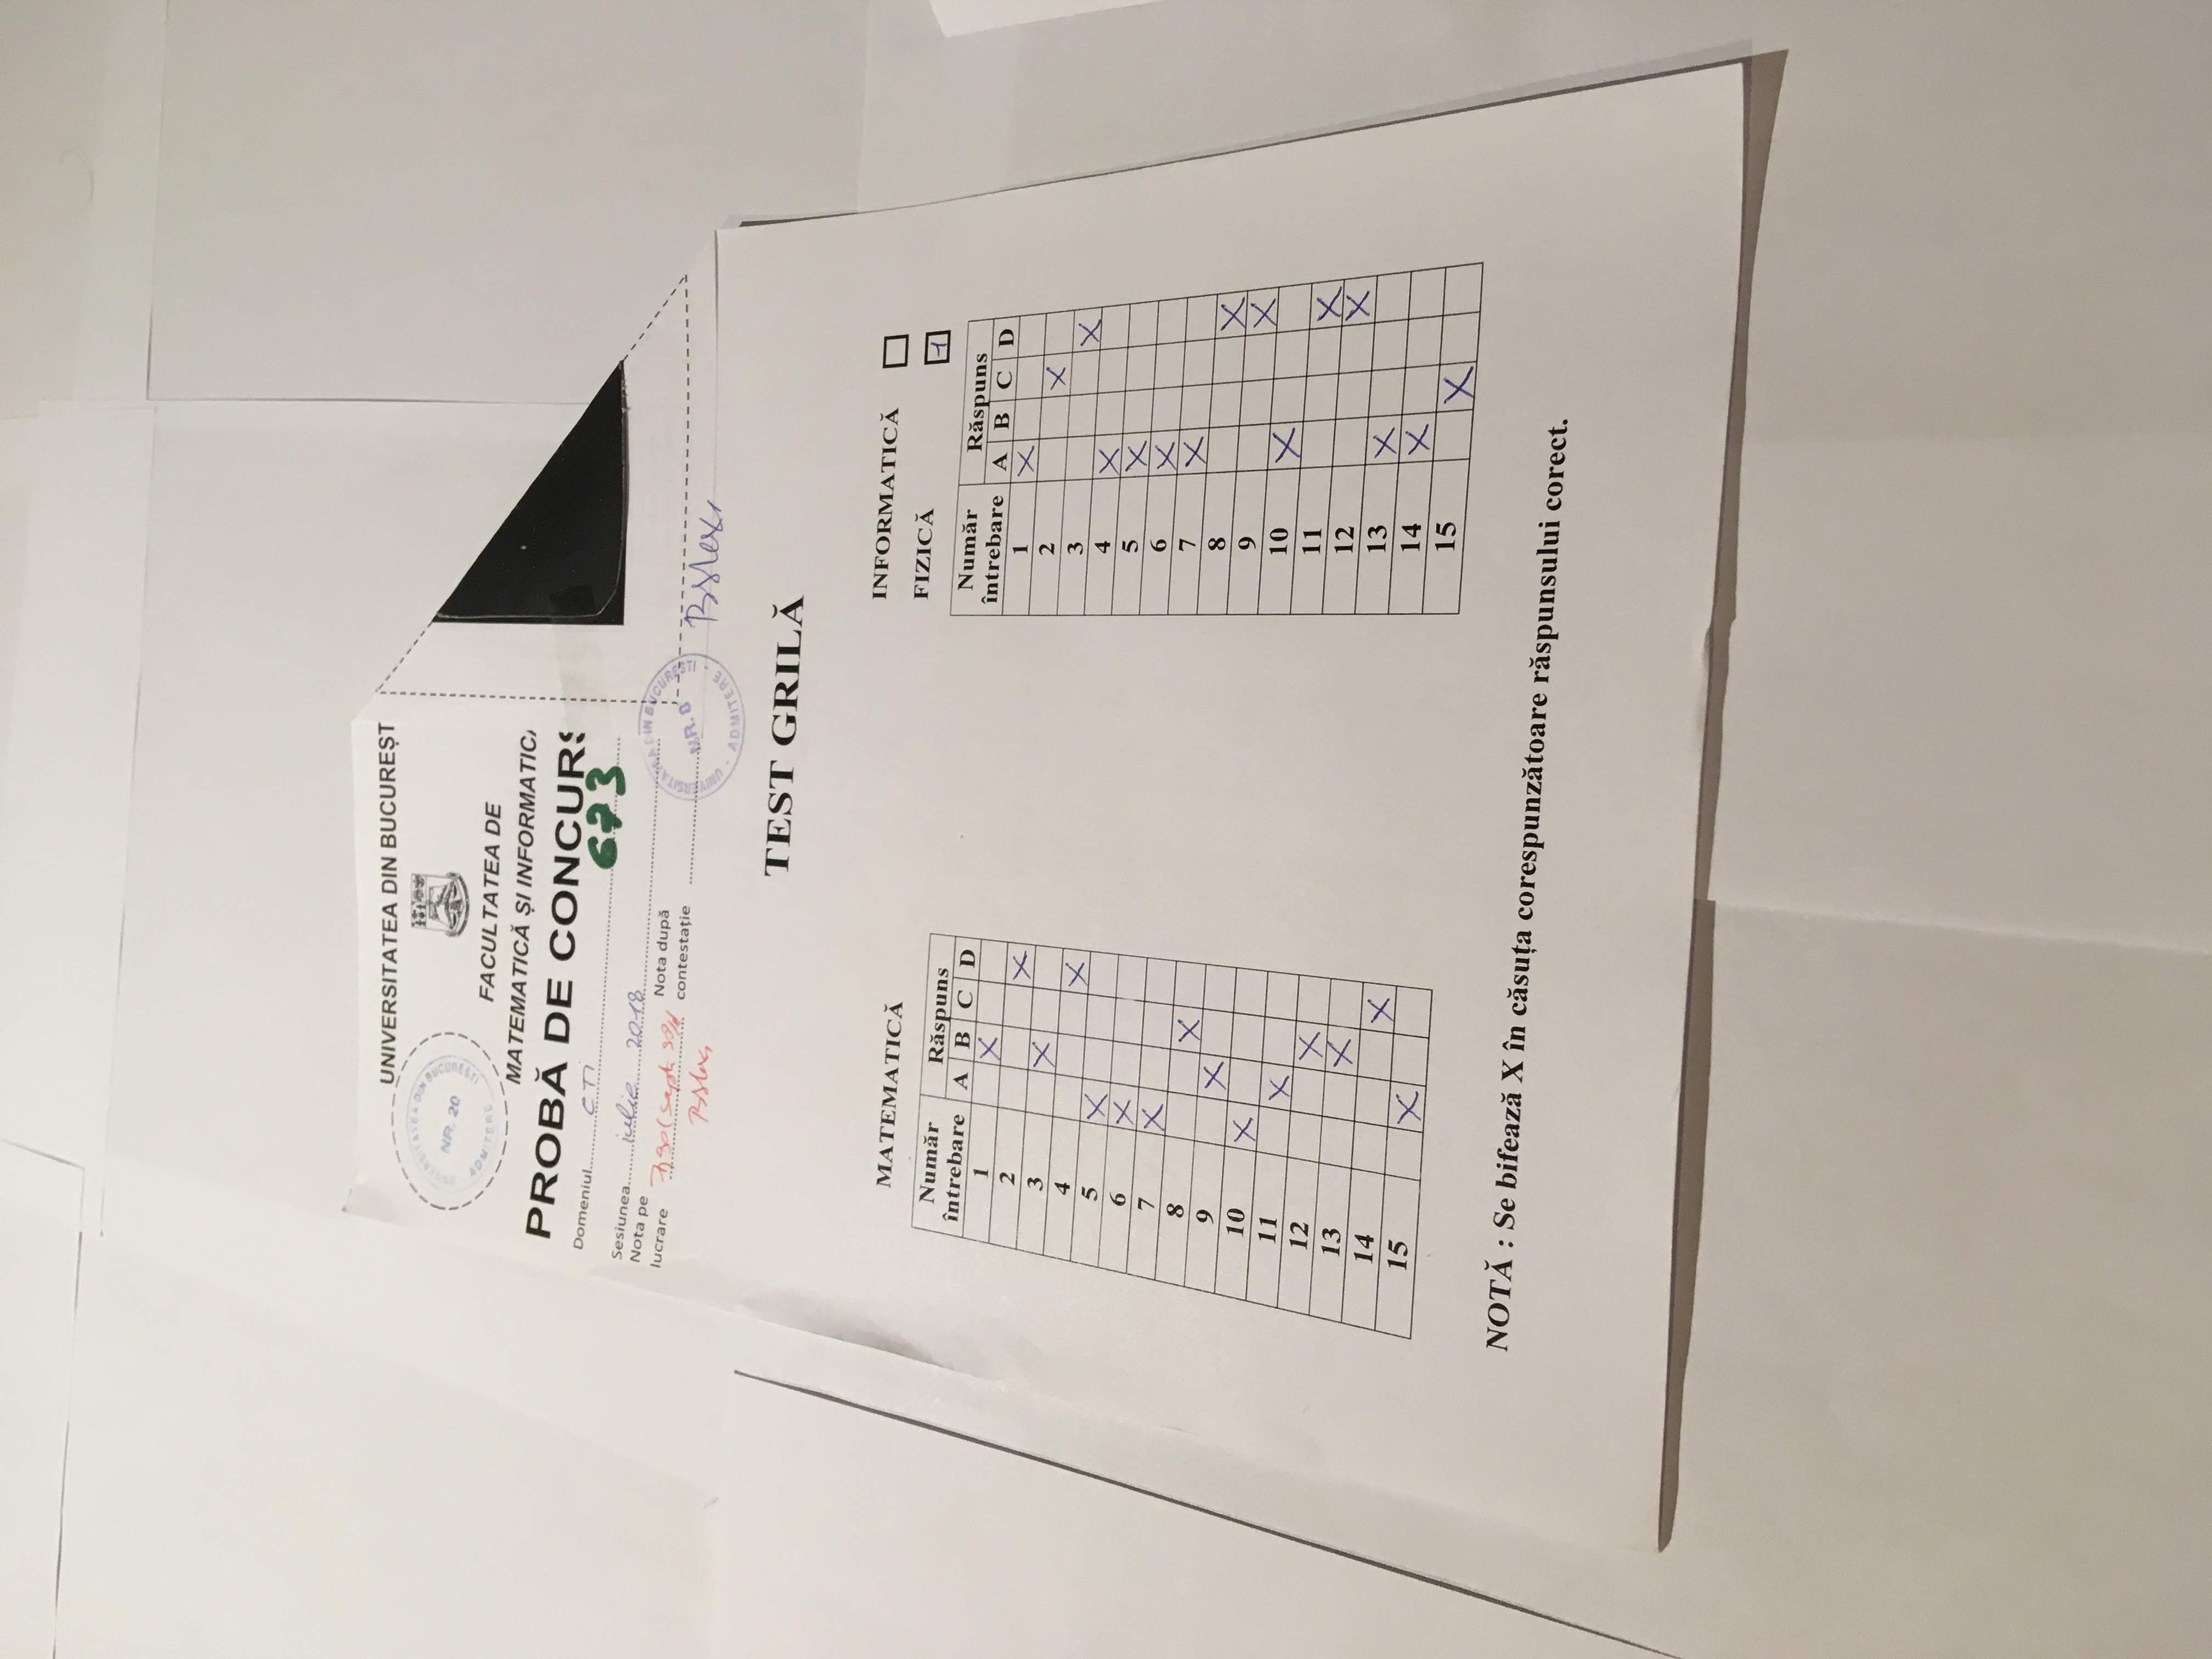 UNIVERSITATEA DIN BUCUREȘT
UNIVERSITATEA DIN BUCUREȘTI
NR. 20
ADMITERE
FACULTATEA DE
MATEMATICĂ ȘI INFORMATIC
PROBĂ DE CONCURS
Domeniul CTI
673
Sesiunea iulie 2018
Nota pe
lucrare
Nota după
contestație
UNIVERSITATEA DIN BUCUREȘTI
NR. 8
ADMITERE
TEST GRILĂ
MATEMATICĂ
Număr
întrebare
Răspuns
A B C D
1 X
2 X
3 X
4 X
5 X
6 X
7 X
8 X
9 X
10 X
11 X
12 X
13 X
14 X
15 X
INFORMATICĂ
FIZICĂ 1
Număr
întrebare
Răspuns
A B C D
1 X
2 X
3 X
4 X
5 X
6 X
7 X
8 X
9 X
10 X
11 X
12 X
13 X
14 X
15 X
NOTĂ : Se bifează X în căsuța corespunzătoare răspunsului corect.